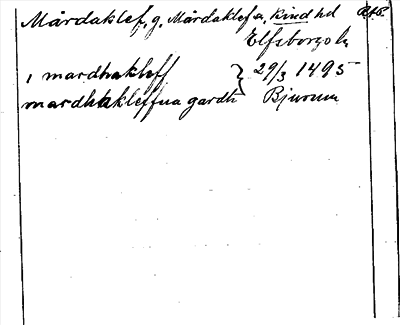 Mårdaklef, g. Mårdaklefva, Kind hd
Elfsborgs l.
i mardhakleff } 29/3 1495
mardhakleffua gardh } Bjurum